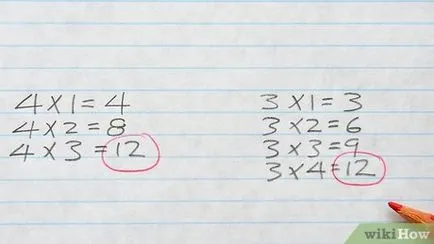 4 x 1 = 4
4 x 2 = 8
4 x 3 = 12
3 x 1 = 3
3 x 2 = 6
3 x 3 = 9
3 x 4 = 12
wikiHow